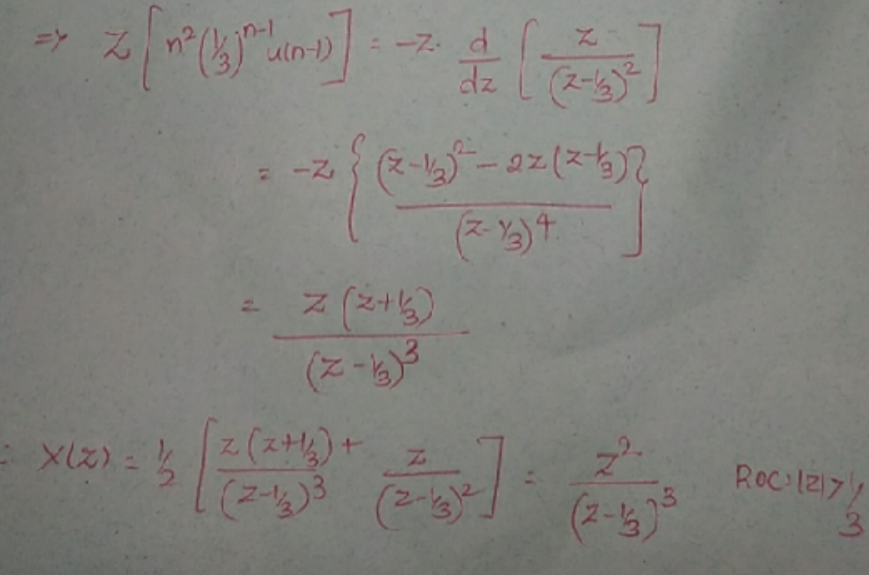 ⇒ Z[n²(1/3)^(n-1) u(n-1)] = -z. d/dz [z/(z-1/3)²]
= -z {((z-1/3)² - 2z(z-1/3))/(z-1/3)⁴}
= z(z+1/3)/(z-1/3)³
∴ X(z) = 1/2 [z(z+1/3)/(z-1/3)³ + z/(z-1/3)²] = z²/(z-1/3)³ ROC: |z| > 1/3